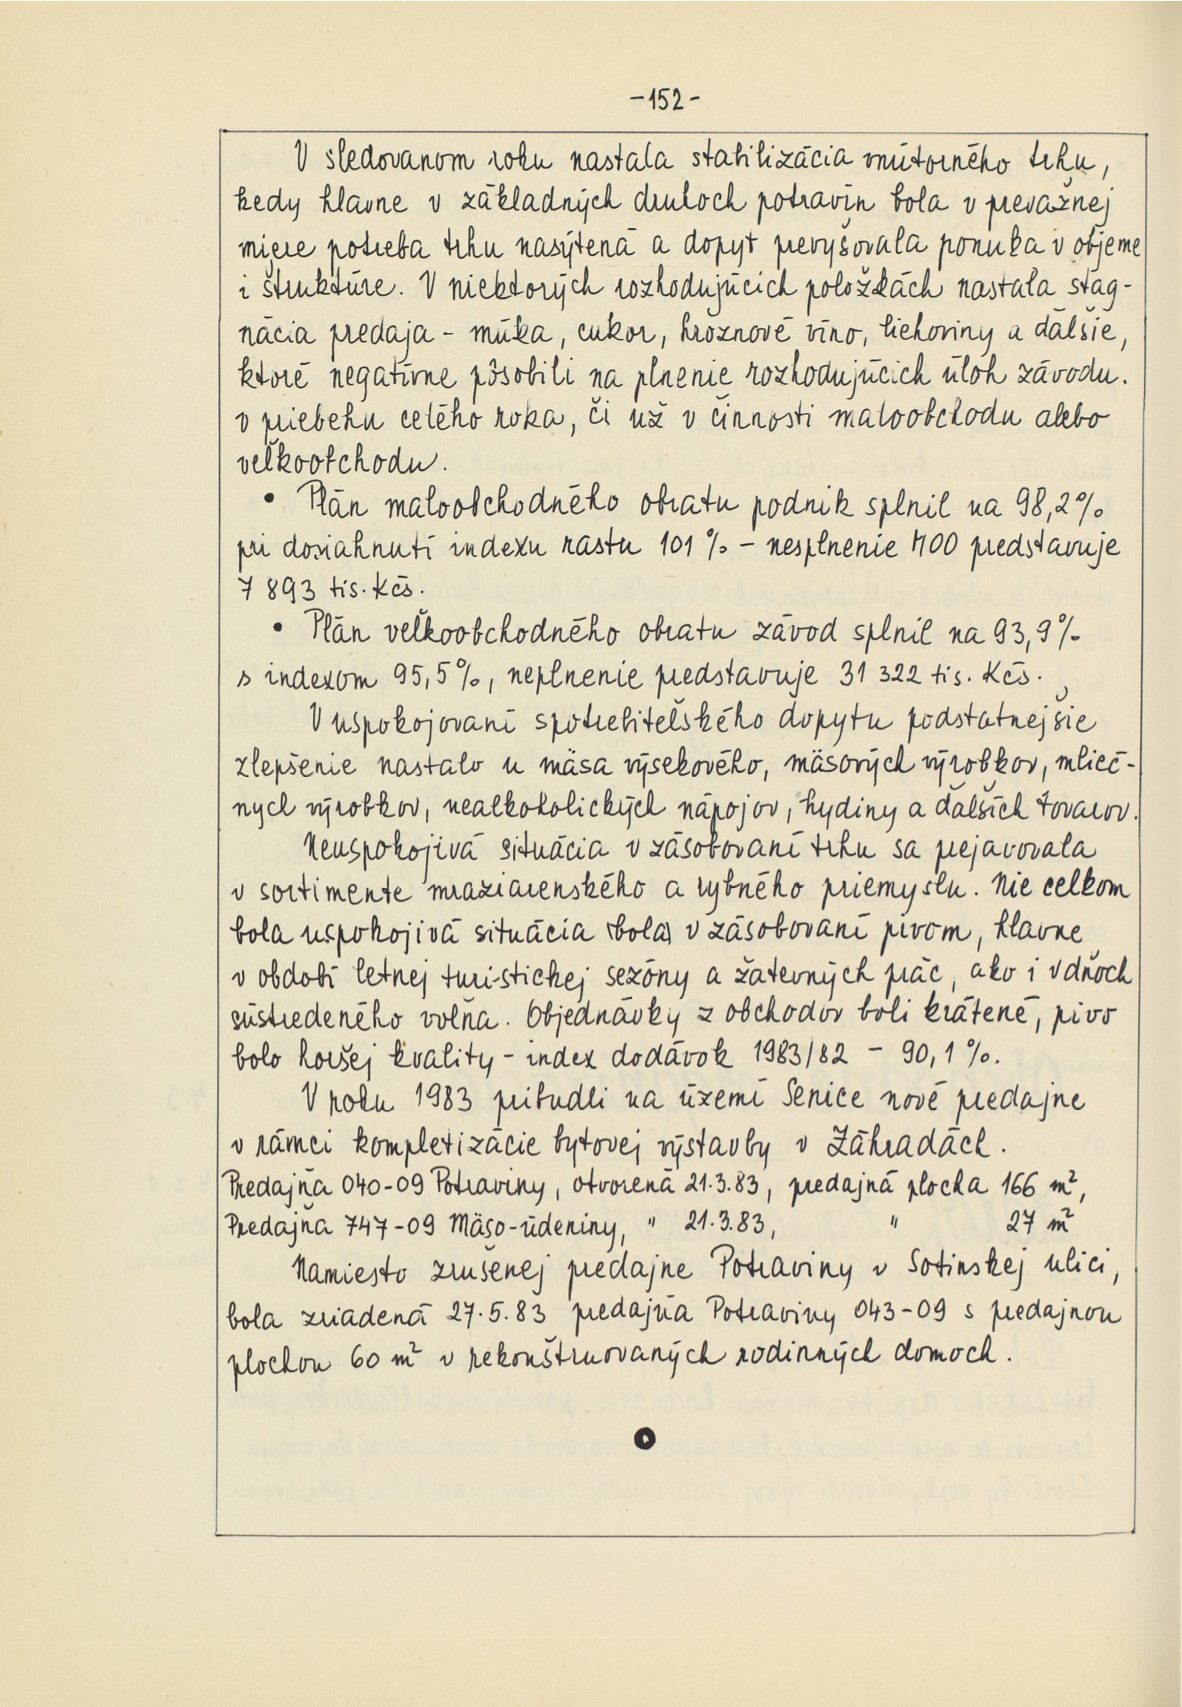 -152-
V sledovanom roku nastala stabilizácia vnútorného trhu,
kedy hlavne v základných druhoch potravín bola v prevažnej
miere potreba trhu nasýtená a dopyt prevyšovala ponuka v objeme
i štruktúre. V niektorých rozhodujúcich položkách nastala stag-
nácia predaja - múka, cukor, hroznové víno, liehoviny a ďalšie,
ktoré negatívne pôsobili na plnenie rozhodujúcich úloh závodu.
v priebehu celého roka, či už v činnosti maloobchodu alebo
veľkoobchodu.
• Plán maloobchodného obratu podnik splnil na 98,2%
pri dosiahnutí indexu rastu 101 % - nesplnenie MOO predstavuje
7 893 tis. Kčs.
• Plán veľkoobchodného obratu závod splnil na 93,9%
s indexom 95,5%, neplnenie predstavuje 31 322 tis. Kčs.
V uspokojovaní spotrebiteľského dopytu podstatnejšie
zlepšenie nastalo u mäsa výsekového, mäsových výrobkov, mlieč-
nych výrobkov, nealkoholických nápojov, hydiny a ďalších tovarov.
Neuspokojivá situácia v zásobovaní trhu sa prejavovala
v sortimente mraziarenského a rybného priemyslu. Nie celkom
bola uspokojivá situácia (bola) v zásobovaní pivom, hlavne
v období letnej turistickej sezóny a žatevných prác, ako i v dňoch
sústredeného voľna. Objednávky z obchodov boli krátené, pivo
bolo horšej kvality - index dodávok 1983/82 - 90,1 %.
V roku 1983 pribudli na území Senice nové predajne
v rámci kompletizácie bytovej výstavby v Záhradách.
Predajňa 040-09 Potraviny, otvorená 21.3.83, predajná plocha 166 m²,
Predajňa 747-09 Mäso-údeniny, " 21.3.83, " 27 m²
Namiesto zrušenej predajne Potraviny v Sotinskej ulici,
bola zriadená 27.5.83 predajňa Potraviny 043-09 s predajnou
plochou 60 m² v rekonštruovaných rodinných domoch.